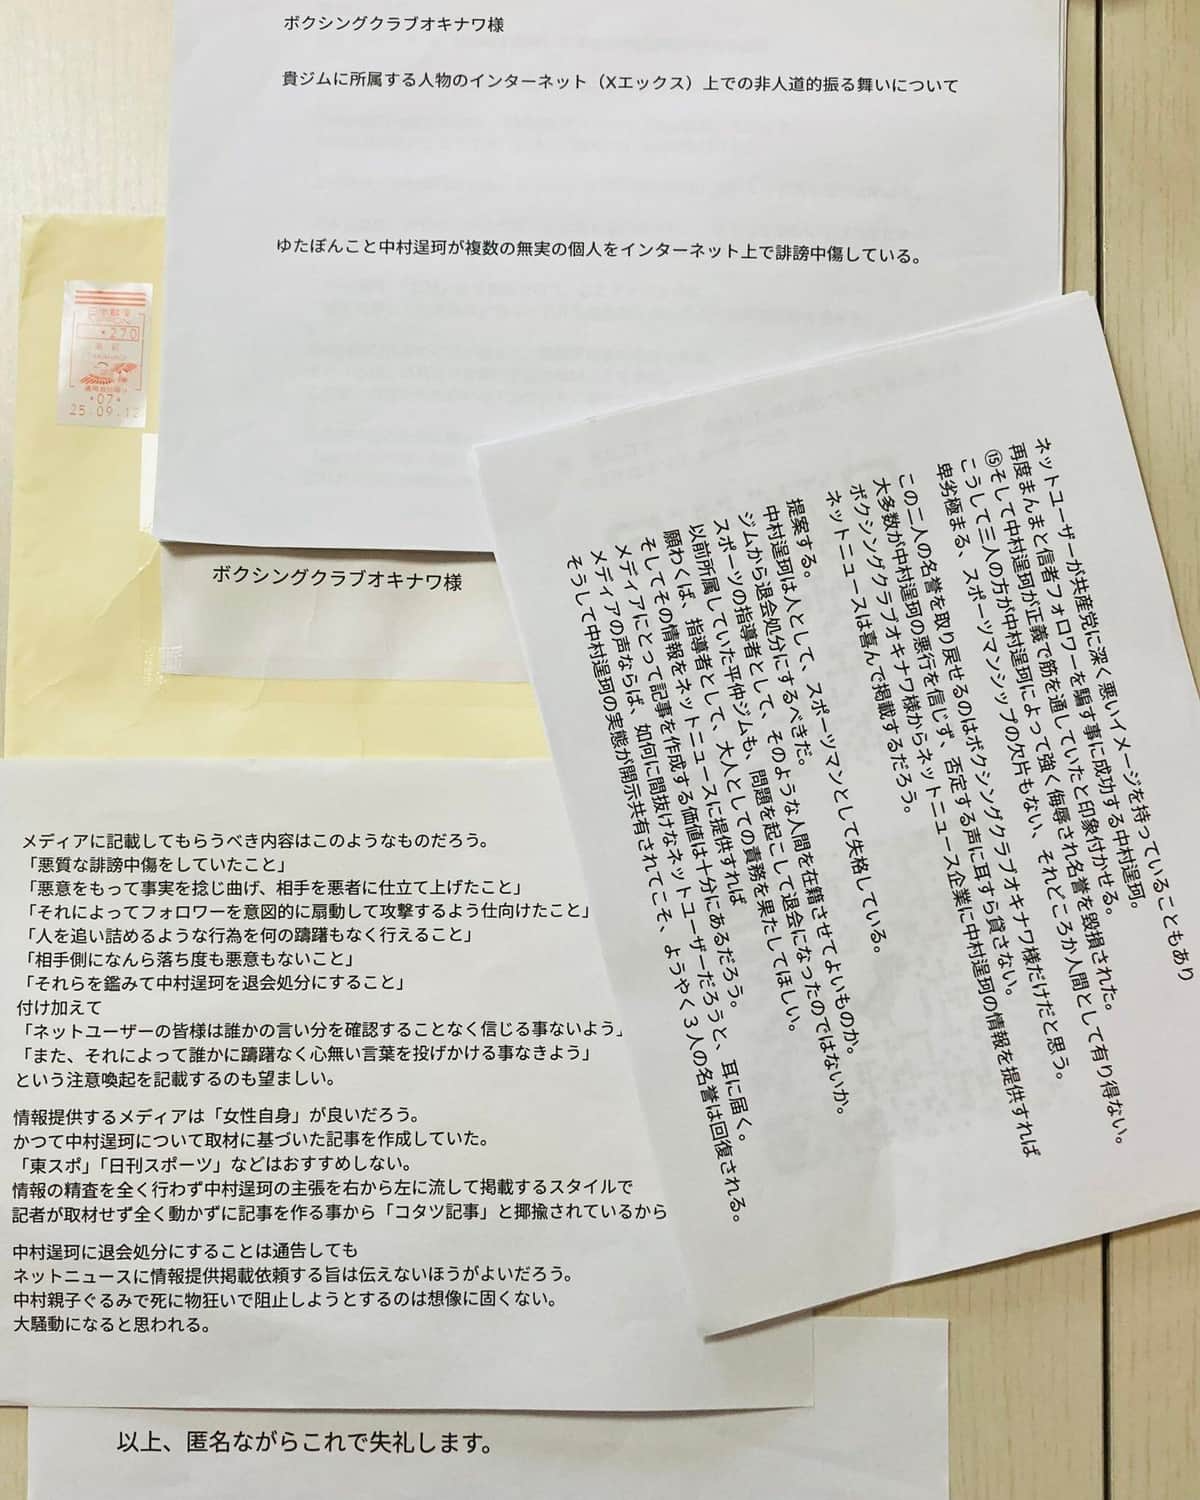 ボクシングクラブオキナワ様
貴ジムに所属する人物のインターネット（Xエックス）上での非人道的振る舞いについて
ゆたぼんこと中村逞珂が複数の無実の個人をインターネット上で誹謗中傷している。
NIPPON
270
07
25.09.1
ボクシングクラブオキナワ様
ネットユーザーが共産党に深く悪いイメージを持っていることもあり
再度まんまと信者フォロワーを騙す事に成功する中村逞珂。
⑮そして中村逞珂が正義で筋を通していたと印象付かせる。
こうして三人の方が中村逞珂によって強く侮辱され名誉を毀損された。
卑劣極まる、スポーツマンシップの欠片もない、それどころか人間として有り得ない。
この二人の名誉を取り戻せるのはボクシングクラブオキナワ様だけだと思う。
大多数が中村逞珂の悪行を信じず、否定する声に耳すら貸さない。
ボクシングクラブオキナワ様からネットニュース企業に中村逞珂の情報を提供すれば
ネットニュースは喜んで掲載するだろう。
提案する。
中村逞珂は人として、スポーツマンとして失格している。
ジムから退会処分にするべきだ。
スポーツの指導者として、そのような人間を在籍させてよいものか。
以前所属していた平仲ジムも、問題を起こして退会になったのではないか。
願わくば、指導者として、大人としての責務を果たしてほしい。
そしてその情報をネットニュースに提供すれば
メディアにとって記事を作成する価値は十分にあるだろう。
メディアの声ならば、如何に間抜けなネットユーザーだろうと、耳に届く。
そうして中村逞珂の実態が開示共有されてこそ、ようやく３人の名誉は回復される。
メディアに記載してもらうべき内容はこのようなものだろう。
「悪質な誹謗中傷をしていたこと」
「悪意をもって事実を捻じ曲げ、相手を悪者に仕立て上げたこと」
「それによってフォロワーを意図的に扇動して攻撃するよう仕向けたこと」
「人を追い詰めるような行為を何の躊躇もなく行えること」
「相手側になんら落ち度も悪意もないこと」
「それらを鑑みて中村逞珂を退会処分にすること」
付け加えて
「ネットユーザーの皆様は誰かの言い分を確認することなく信じる事ないよう」
「また、それによって誰かに躊躇なく心無い言葉を投げかける事なきよう」
という注意喚起を記載するのも望ましい。
情報提供するメディアは「女性自身」が良いだろう。
かつて中村逞珂について取材に基づいた記事を作成していた。
「東スポ」「日刊スポーツ」などはおすすめしない。
情報の精査を全く行わず中村逞珂の主張を右から左に流して掲載するスタイルで
記者が取材せず全く動かずに記事を作る事から「コタツ記事」と揶揄されているから
中村逞珂に退会処分にすることは通告しても
ネットニュースに情報提供掲載依頼する旨は伝えないほうがよいだろう。
中村親子ぐるみで死に物狂いで阻止しようとするのは想像に固くない。
大騒動になると思われる。
以上、匿名ながらこれで失礼します。